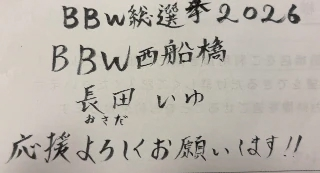 BBW総選挙2026
BBW西船橋
長田いゆ
おさだ
応援よろしくお願いします!!